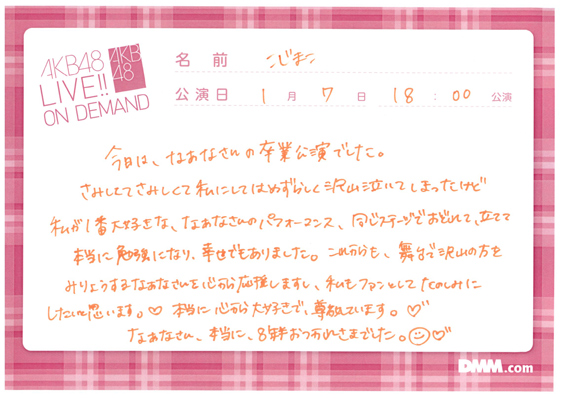 AKB48
LIVE!!
ON DEMAND
AKB
48
名前 こじまこ
公演日 1月7日 18:00公演
今日は、なぁなさんの卒業公演でした。
さみしくてさみしくて私にしてはめずらしく沢山泣いてしまったけど
私が1番大好きな、なぁなさんのパフォーマンス、同じステージでおどれて、立てて
本当に勉強になり、幸せでもありました。これからも、舞台で沢山の方を
みりょうするなぁなさんを心から応援しますし、私もファンとしてたのしみに
したいと思います。♡ 本当に心から大好きで、尊敬しています。♡
なぁなさん、本当に、8年半おつかれさまでした。☺♡
DMM.com